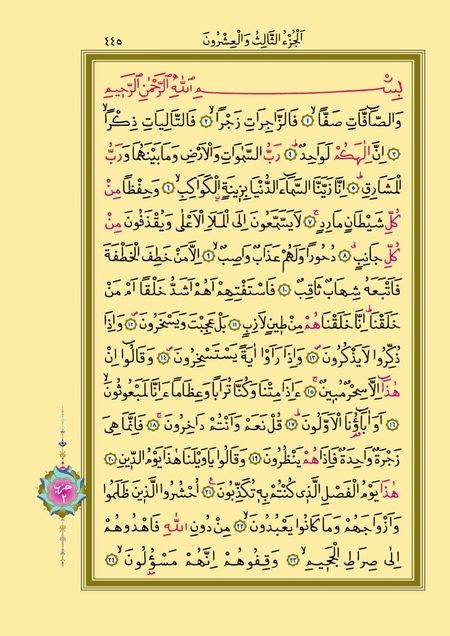 ٤٤٥ اَلْجُزْءُ الثَّالِثُ وَالْعِشْرُونَ
بِسْمِ اللّٰهِ الرَّحْمٰنِ الرَّحِيمِ
وَالصَّٓافَّاتِ صَفًّاۙ ﴿١﴾ فَالزَّاجِرَاتِ زَجْرًاۙ ﴿٢﴾ فَالتَّالِيَاتِ ذِكْرًاۙ
﴿٣﴾ اِنَّ اِلٰهَكُمْ لَوَاحِدٌۜ ﴿٤﴾ رَبُّ السَّمٰوَاتِ وَالْاَرْضِ وَمَا بَيْنَهُمَا وَرَبُّ
الْمَشَارِقِۜ ﴿٥﴾ اِنَّا زَيَّنَّا السَّمَٓاءَ الدُّنْيَا بِزِينَةٍۨ الْكَوَاكِبِۙ ﴿٦﴾ وَحِفْظًا مِنْ
كُلِّ شَيْطَانٍ مَارِدٍۚ ﴿٧﴾ لَا يَسَّمَّعُونَ اِلَى الْمَلَاِ الْاَعْلٰى وَيُقْذَفُونَ مِنْ
كُلِّ جَانِبٍۗ ﴿٨﴾ دُحُورًا وَلَهُمْ عَذَابٌ وَاصِبٌۙ ﴿٩﴾ اِلَّا مَنْ خَطِفَ الْخَطْفَةَ
فَاَتْبَعَهُ شِهَابٌ ثَاقِبٌ ﴿١٠﴾ فَاسْتَفْتِهِمْ اَهُمْ اَشَدُّ خَلْقًا اَمْ مَنْ
خَلَقْنَاۜ اِنَّا خَلَقْنَاهُمْ مِنْ طِينٍ لَازِبٍ ﴿١١﴾ بَلْ عَجِبْتَ وَيَسْخَرُونَۖ ﴿١٢﴾ وَاِذَا
ذُكِّرُوا لَا يَذْكُرُونَۖ ﴿١٣﴾ وَاِذَا رَاَوْا اٰيَةً يَسْتَسْخِرُونَۖ ﴿١٤﴾ وَقَالُٓوا اِنْ
هٰذَٓا اِلَّا سِحْرٌ مُبِينٌۚ ﴿١٥﴾ ءَاِذَا مِتْنَا وَكُنَّا تُرَابًا وَعِظَامًا ءَاِنَّا لَمَبْعُوثُونَۙ
﴿١٦﴾ اَوَاٰبَٓاؤُ۬نَا الْاَوَّلُونَۜ ﴿١٧﴾ قُلْ نَعَمْ وَاَنْتُمْ دَاخِرُونَۚ ﴿١٨﴾ فَاِنَّمَا هِيَ
زَجْرَةٌ وَاحِدَةٌ فَاِذَا هُمْ يَنْظُرُونَ ﴿١٩﴾ وَقَالُوا يَا وَيْلَنَا هٰذَا يَوْمُ الدّ۪ينِ ﴿٢٠﴾
هٰذَا يَوْمُ الْفَصْلِ الَّذ۪ي كُنْتُمْ بِه۪ تُكَذِّبُونَ۟ ﴿٢١﴾ اُحْشُرُوا الَّذ۪ينَ ظَلَمُوا
وَاَزْوَاجَهُمْ وَمَا كَانُوا يَعْبُدُونَۙ ﴿٢٢﴾ مِنْ دُونِ اللّٰهِ فَاهْدُوهُمْ
اِلٰى صِرَاطِ الْجَح۪يمِۙ ﴿٢٣﴾ وَقِفُوهُمْ اِنَّهُمْ مَسْؤُ۫لُونَۙ ﴿٢٤﴾
حزب
٢